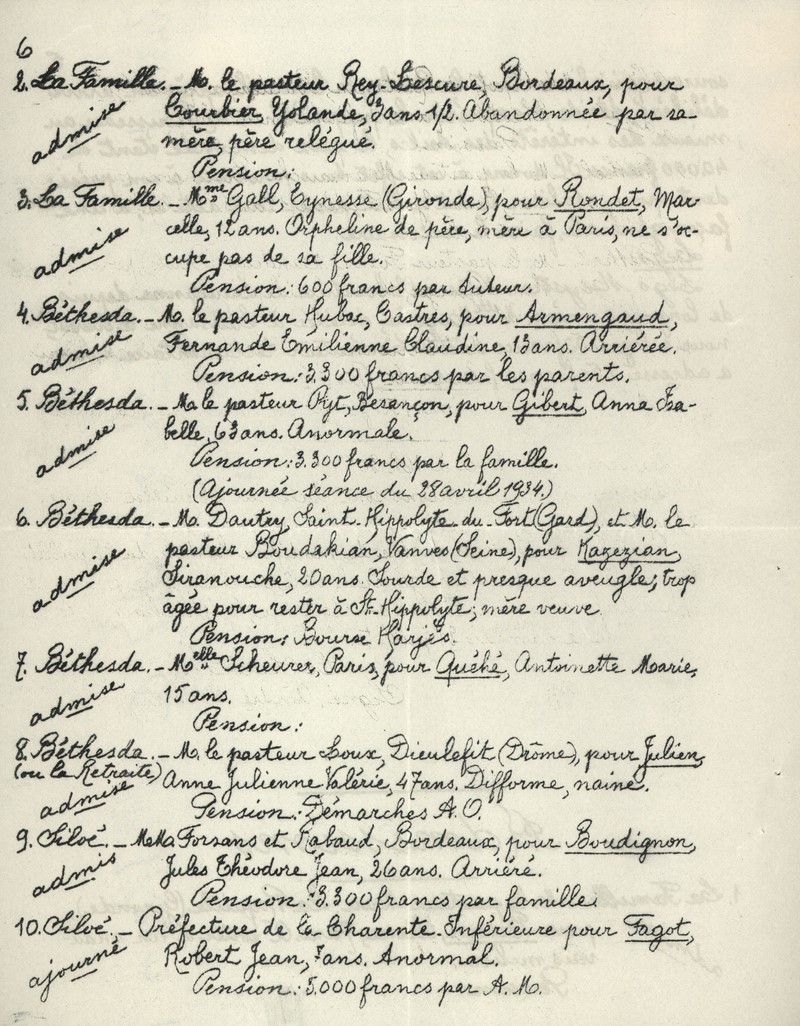 6
2. La Famille. - M. le pasteur Rey-Lescure, Bordeaux, pour
admise
Courbier, Yolande, 3 ans 1/2. Abandonnée par sa
mère, père relégué.
Pension:
3. La Famille. - Mme Gall, Eynesse (Gironde), pour Rondet, Mar-
admise
celle, 12 ans. Orpheline de père, mère à Paris, ne s'oc-
cupe pas de sa fille.
Pension: 600 francs par tuteur.
4. Béthesda. - M. le pasteur Hubac, Castres, pour Armengaud,
admise
Fernande Emilienne Claudine, 13 ans. Arriérée.
Pension: 3.300 francs par les parents.
5. Béthesda. - M. le pasteur Pyt, Besançon, pour Gibert, Anna Isa-
admise
belle, 63 ans. Anormale.
Pension: 3.300 francs par la famille.
(Ajournée séance du 28 avril 1934.)
6. Béthesda. - M. Dautry, Saint-Hippolyte-du-Fort (Gard), et M. le
admise
pasteur Boudakian, Vanves (Seine), pour Kazezian,
Siranouche, 20 ans. Sourde et presque aveugle; trop
âgée pour rester à St-Hippolyte; mère veuve.
Pension: Bourse Karjès.
7. Béthesda. - Melle Scheurer, Paris, pour Quéhé, Antoinette Marie,
admise
15 ans.
Pension:
8. Béthesda. - M. le pasteur Loux, Dieulefit (Drôme), pour Julien,
(ou la Retraite)
admise
Anne Julienne Valérie, 47 ans. Difforme, naine.
Pension: Démarches A.O.
9. Siloé. - MM. Forsans et Rabaud, Bordeaux, pour Boudignon,
admis
Jules Théodore Jean, 26 ans. Arriéré.
Pension: 3.300 francs par famille.
10. Siloé. - Préfecture de la Charente-Inférieure pour Fagot,
ajourné
Robert Jean, 7 ans. Anormal.
Pension: 5.000 francs par A.M.